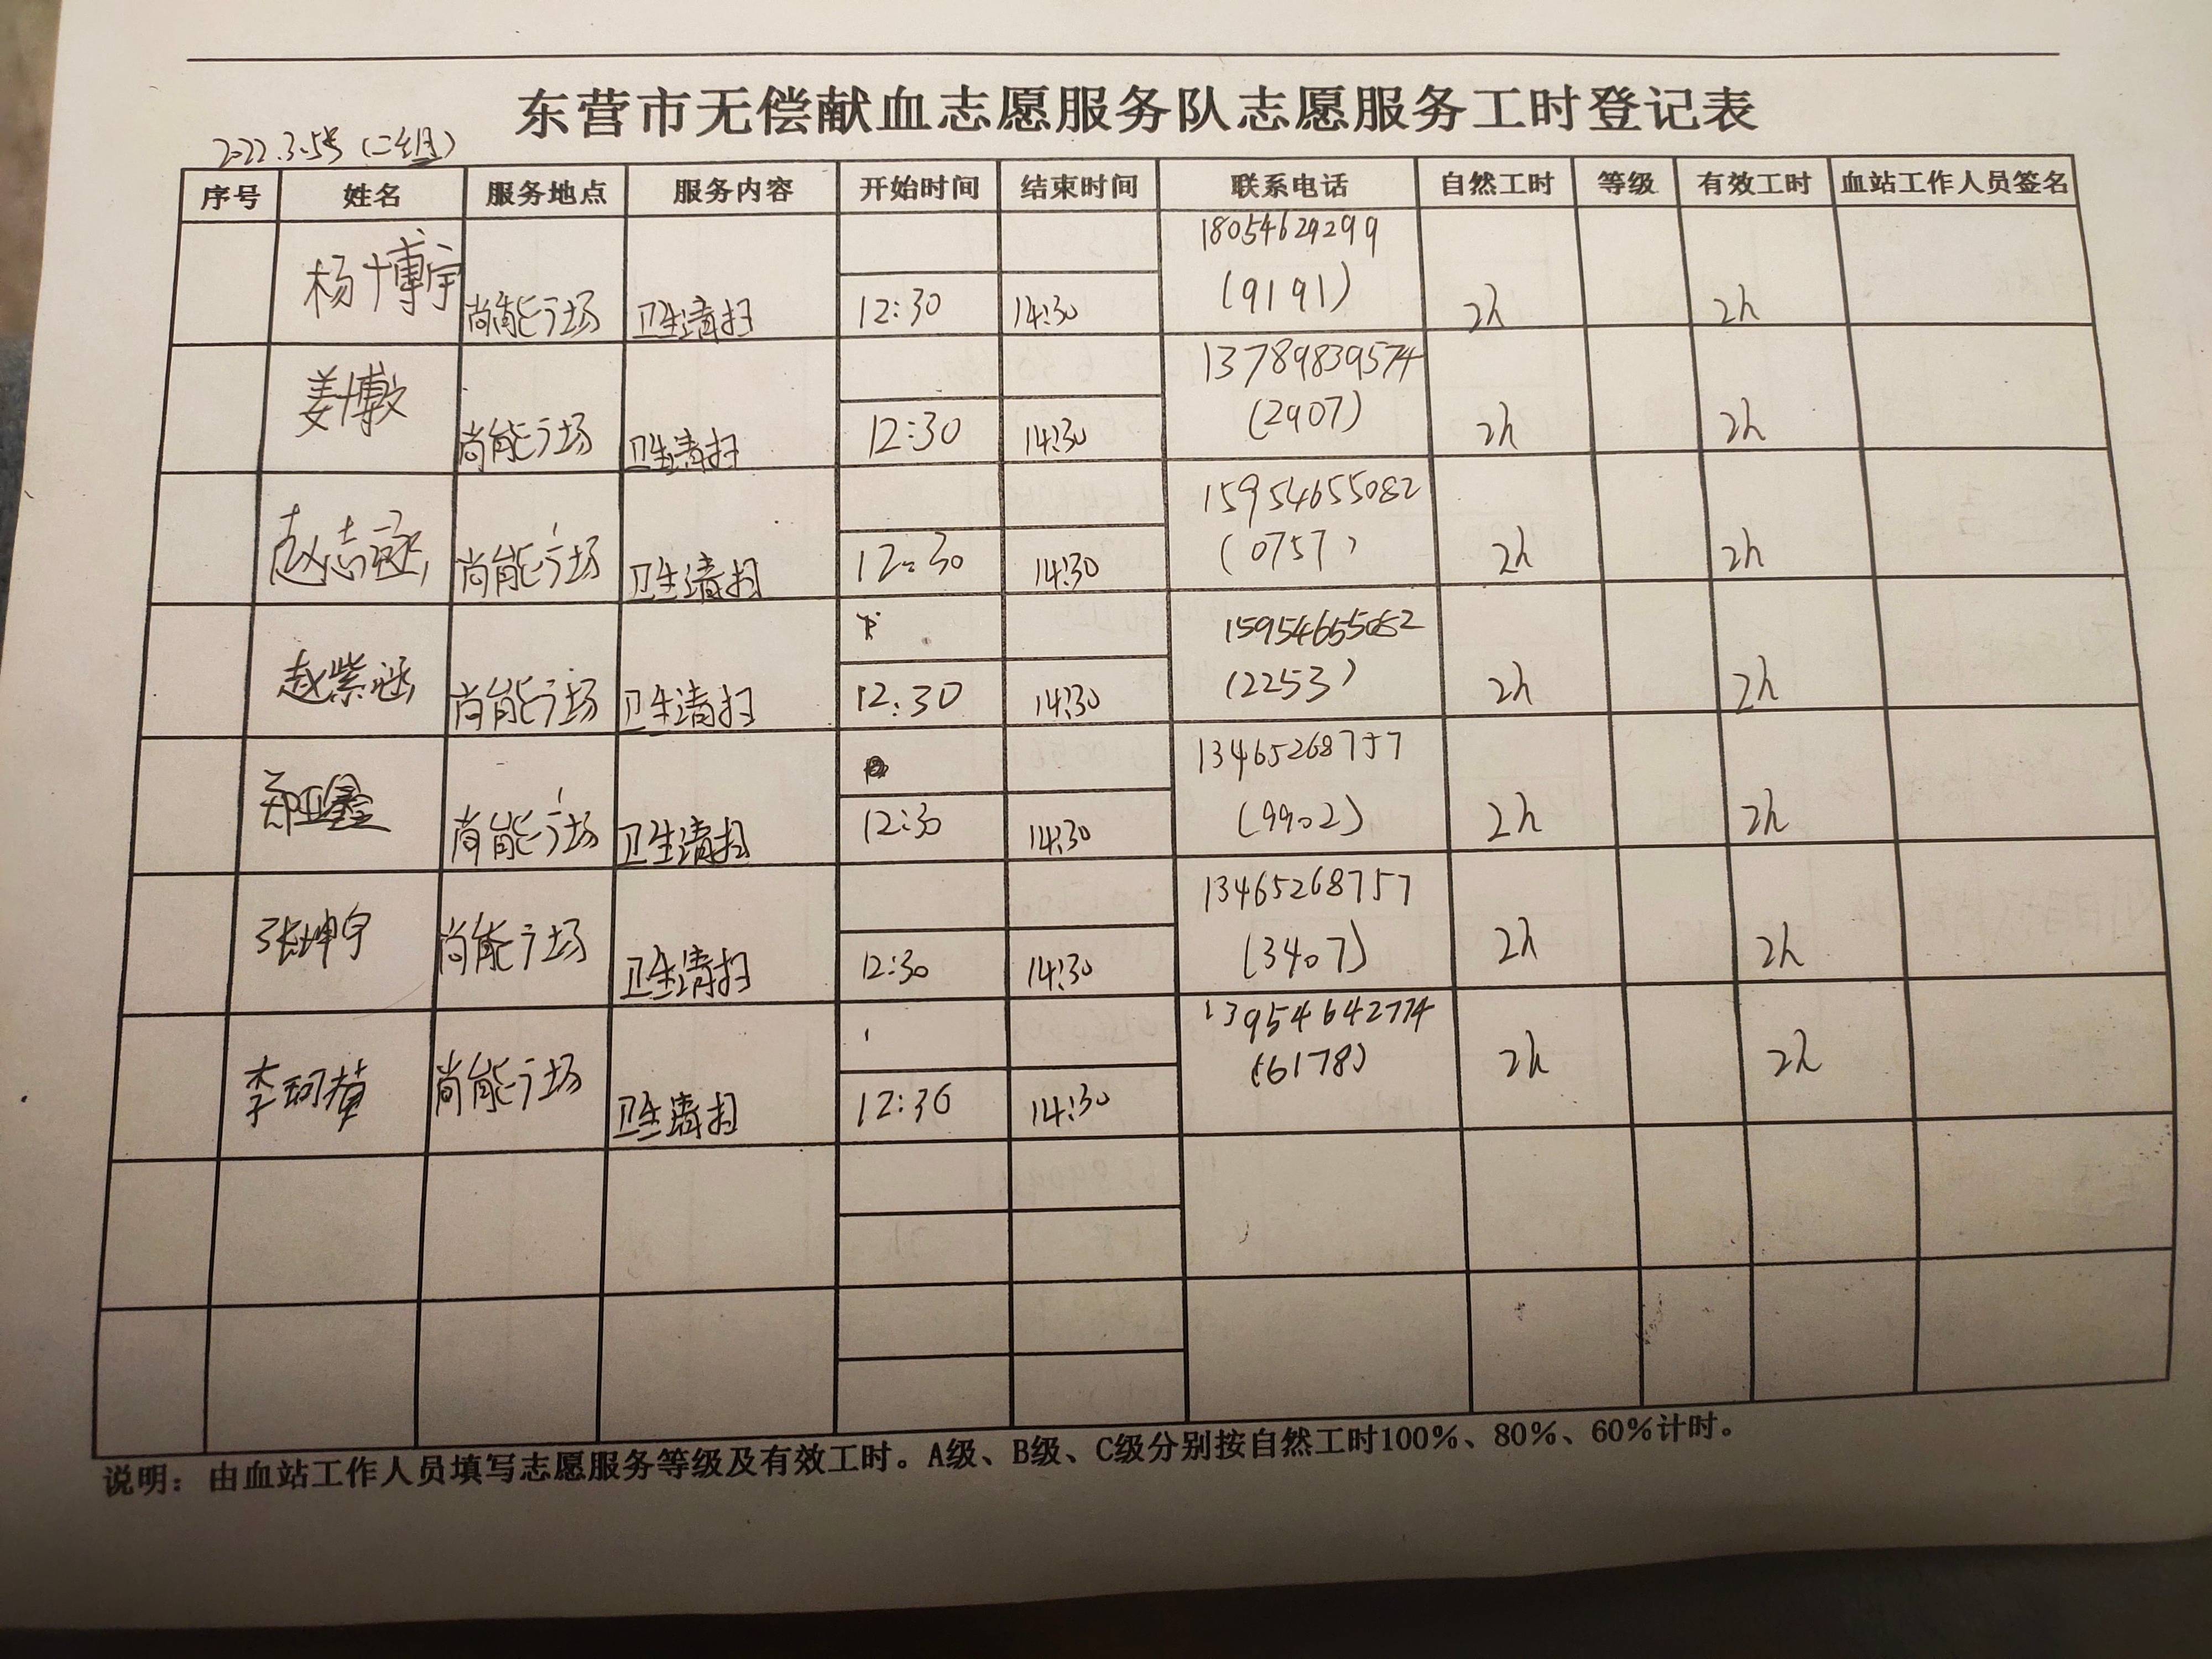 东营市无偿献血志愿服务队志愿服务工时登记表
2022.3.5号（二组）
序号 姓名 服务地点 服务内容 开始时间 结束时间 联系电话 自然工时 等级 有效工时 血站工作人员签名
18054629299
杨博宇 尚能广场 卫生清扫 12:30 14:30 (9191) 2h 2h
13789839574
姜博文 尚能广场 卫生清扫 12:30 14:30 (2907) 2h 2h
15954655082
赵志 尚能广场 卫生清扫 12:30 14:30 (0757) 2h 2h
15954655082
赵紫涵 尚能广场 卫生清扫 12:30 14:30 (2253) 2h 2h
13465268757
郑亚鑫 尚能广场 卫生清扫 12:30 14:30 (9902) 2h 2h
13465268757
张坤宇 尚能广场 卫生清扫 12:30 14:30 (3407) 2h 2h
13954642774
李珂 尚能广场 卫生清扫 12:30 14:30 (6178) 2h 2h
说明：由血站工作人员填写志愿服务等级及有效工时。A级、B级、C级分别按自然工时100%、80%、60%计时。